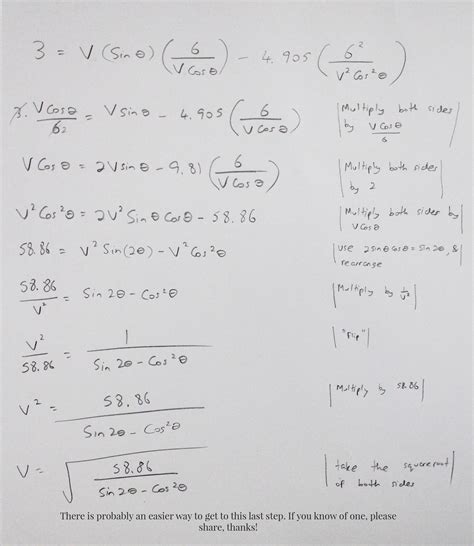 3 = V (Sin θ) (6 / V Cos θ) - 4.905 (6² / V² Cos² θ)
3. V Cos θ / 6 2 = V Sin θ - 4.905 (6 / V Cos θ) |Multiply both sides by V Cos θ / 6|
V Cos θ = 2V Sin θ - 9.81 (6 / V Cos θ) |Multiply both sides by 2|
V² Cos² θ = 2V² Sin θ Cos θ - 58.86 |Multiply both sides by V Cos θ|
58.86 = V² Sin(2θ) - V² Cos² θ |use 2 sin θ cos θ = Sin 2θ, & rearrange|
58.86 / V² = Sin 2θ - Cos² θ |Multiply by 1/V²|
V² / 58.86 = 1 / Sin 2θ - Cos² θ |"Flip"|
V² = 58.86 / Sin 2θ - Cos² θ |Multiply by 58.86|
V = √(58.86 / Sin 2θ - Cos² θ) |take the squareroot of both sides|
There is probably an easier way to get to this last step. If you know of one, please
share, thanks!